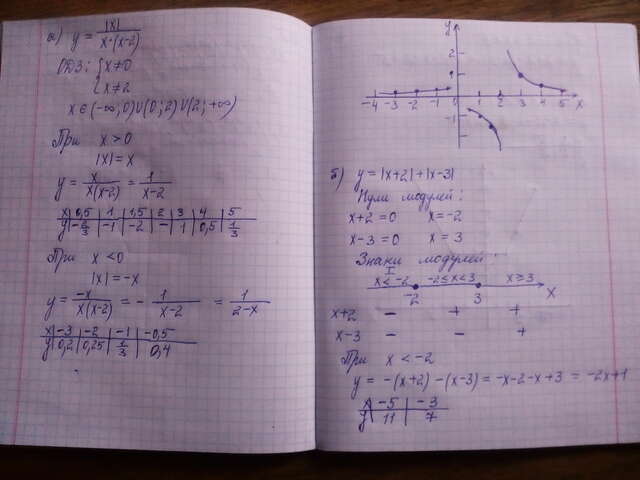 а) y = |x| / x·(x-2)
ОДЗ: { x≠0
{ x≠2
x ∈ (-∞; 0) ∪ (0; 2) ∪ (2; +∞)
При x > 0
|x| = x
y = x / x(x-2) = 1 / x-2
x | 0,5 | 1 | 1,5 | 2 | 3 | 4 | 5
y | -2/3 | -1 | -2 | - | 1 | 0,5 | 1/3
При x < 0
|x| = -x
y = -x / x(x-2) = - 1 / x-2 = 1 / 2-x
x | -3 | -2 | -1 | -0,5
y | 0,2 | 0,25 | 1/3 | 0,4
y
2
-4 -3 -2 -1 0 1 2 3 4 5 x
-1
-2
б) y = |x+2| + |x-3|
Нули модулей:
x+2 = 0 x = -2
x-3 = 0 x = 3
Знаки модулей:
I
x < -2 -2 ≤ x < 3 x ≥ 3
-2 3 x
x+2 - + +
x-3 - - +
При x < -2
y = -(x+2) - (x-3) = -x-2-x+3 = -2x+1
x | -5 | -3
y | 11 | 7